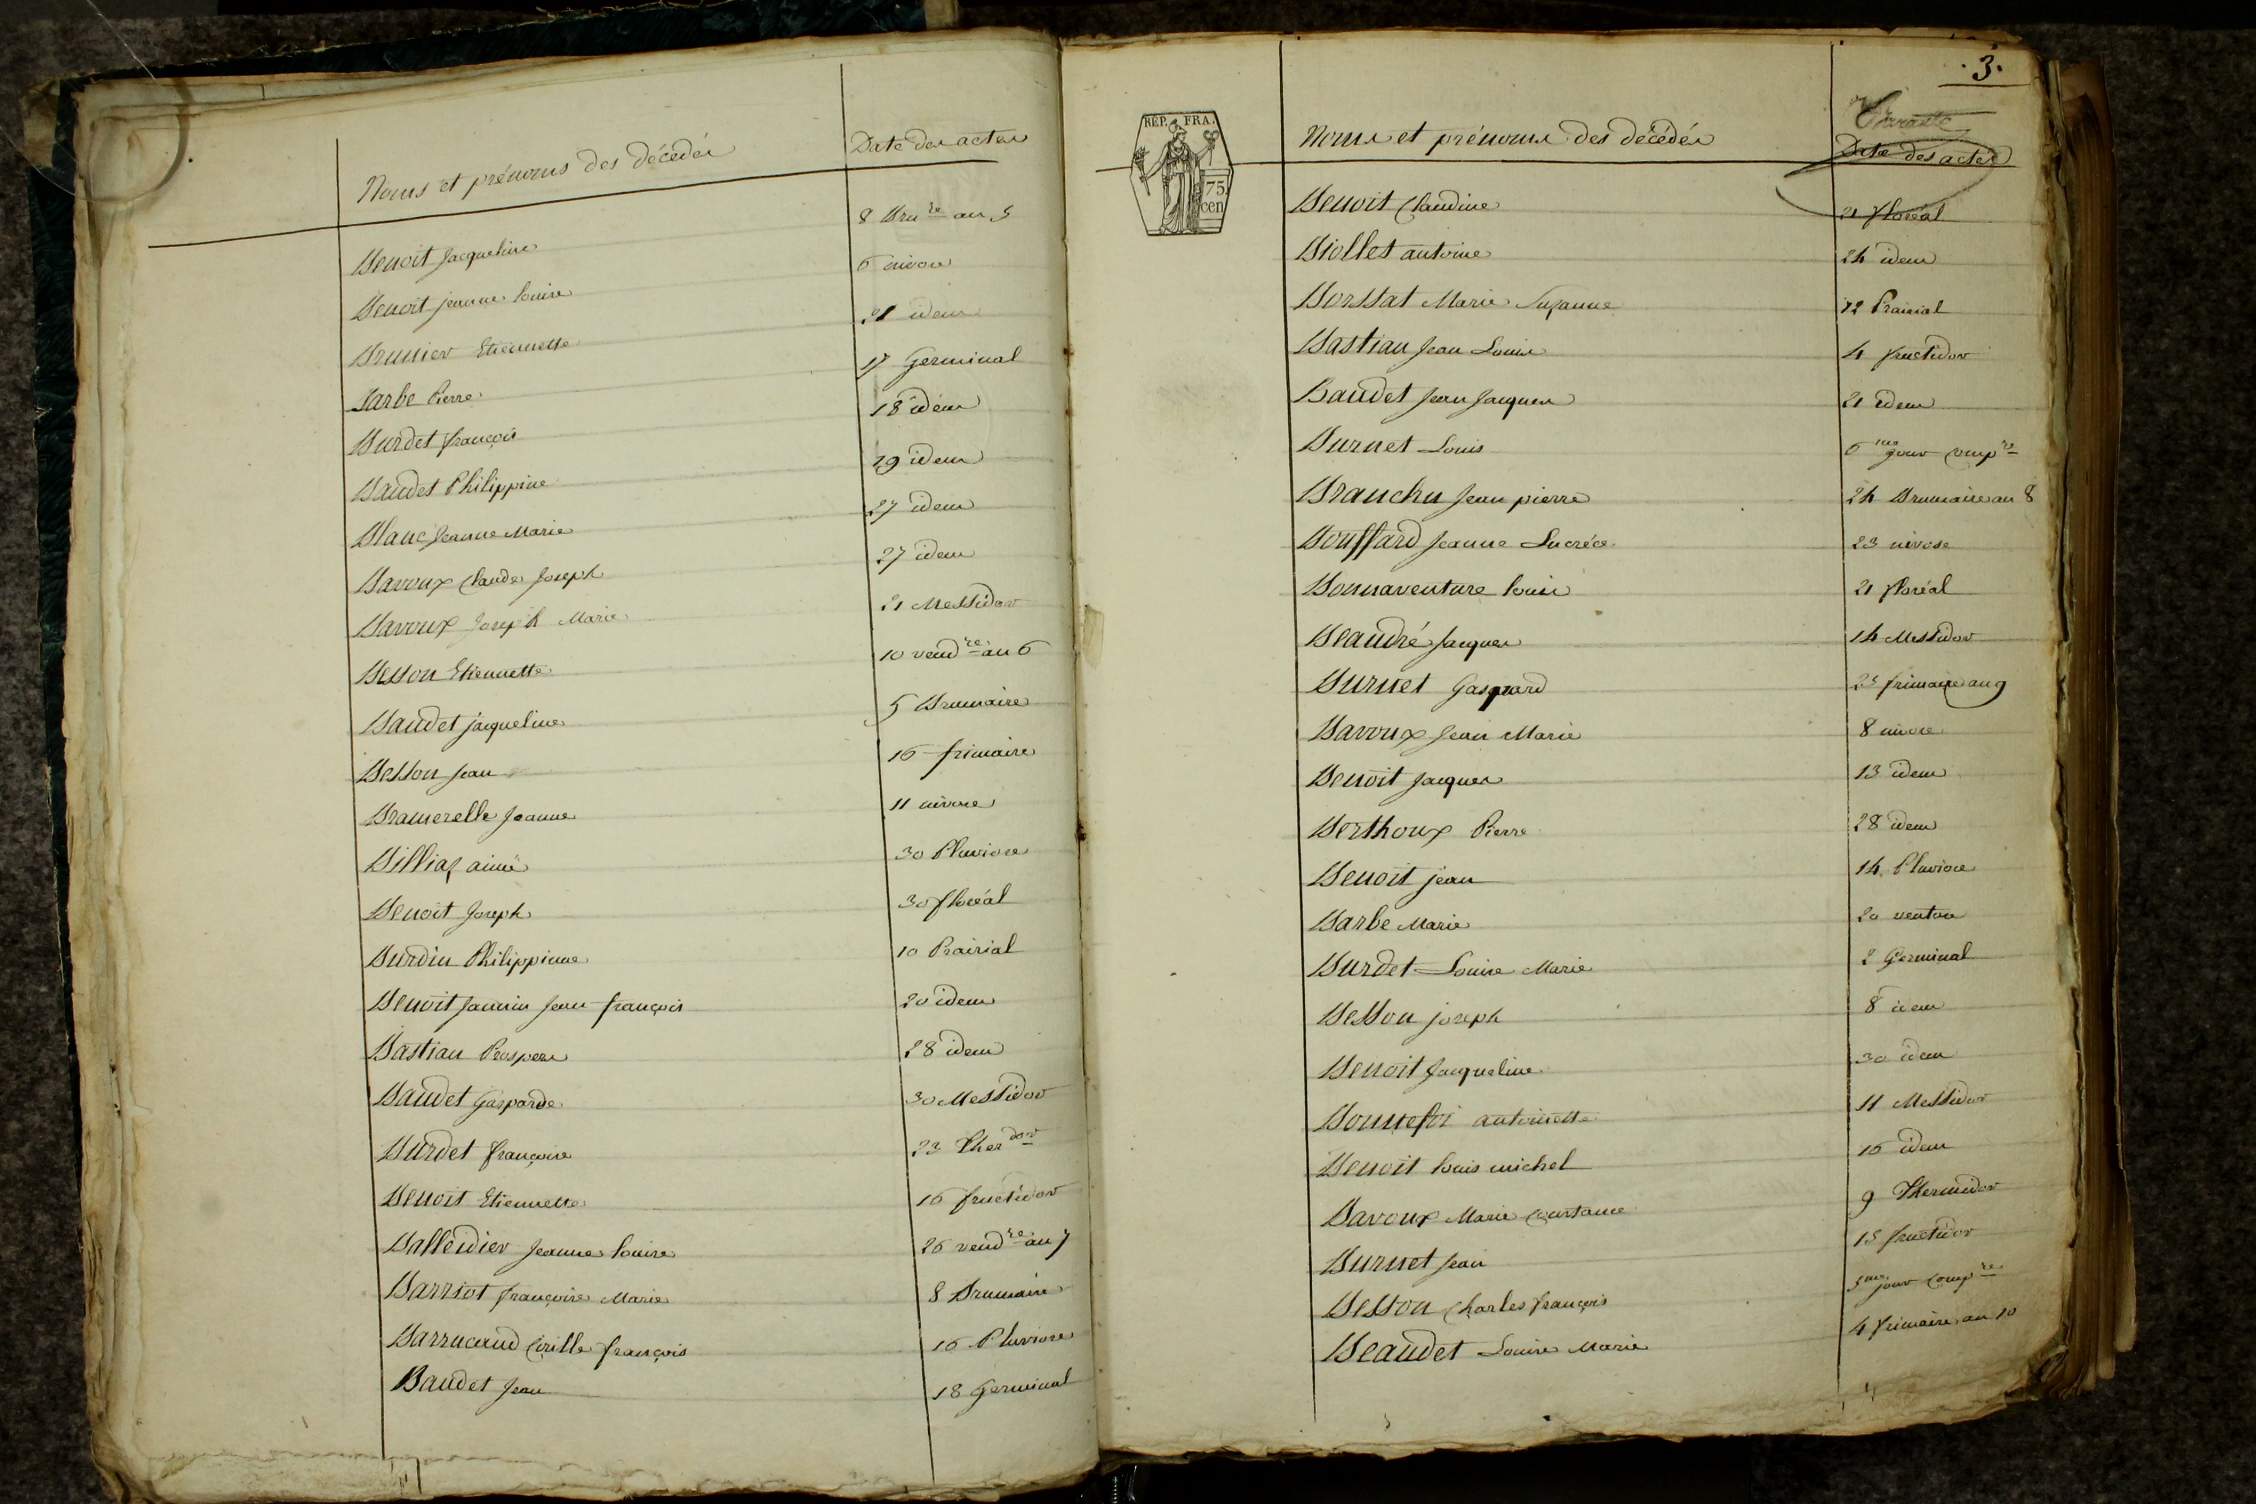 Noms et prénoms des décédés Date des actes
Benoit Jacqueline 8 Bru re an 5
Benoit jeanne louise 6 nivose
Brunier Etiennette 21 idem
Barbe Pierre 17 Germinal
Burdet françois 18 idem
Baudet Philippine 29 idem
Blanc Jeanne Marie 27 idem
Bavoux Claude Joseph 27 idem
Bavoux Joseph Marie 21 Messidor
Besson Etiennette 10 vend re an 6
Baudet jacqueline 5 Brumaire
Besson Jean 16 frimaire
Bramerelle Jeanne 11 nivose
Billiaz aimé 30 Pluviose
Benoit Joseph 30 floréal
Burdin Philippinne 10 Prairial
Benoit Jean françois 20 idem
Bastian Prosper 28 idem
Baudet Gasparde 30 Messidor
Burdet françoise 23 Ther dor
Benoit Etiennette 16 fructidor
Balleidier Jeanne louise 26 vend re an 7
Barriot françoise Marie 8 Brumaire
Barrucand Cirille françois 16 Pluviose
Baudet Jean 18 Germinal
3.
REP. FRA.
75
cen
Noms et prénoms des décédés Date des actes
Benoit Claudine 21 floréal
Biollet antoine 24 idem
Borssat Marie Suzanne 12 Prairial
Bastian Jean Louis 4 fructidor
Baudet Jean Jacques 21 idem
Burnet Louis 6 me jour comp re
Branchu Jean pierre 24 Brumaire an 8
Bouffard Jeanne Lucréce 23 nivose
Bonnaventure louis 21 floréal
Beaudré Jacques 14 Messidor
Burnet Gaspard frimaire an 9
Bavoux Jean Marie 8 nivose
Benoit Jacques 13 idem
Berthoux Pierre 28 idem
Benoit jean 14 Pluviose
Barbe Marie 20 ventose
Burdet Louise Marie 2 Germinal
Besson joseph 8 idem
Benoit Jacqueline 30 idem
Bonnefoi antoinette 11 Messidor
Benoit louis michel 16 idem
Bavoux Marie Constance 9 Thermidor
Burnet Jean 15 fructidor
Besson Charles françois 5 me jour comp re
Beaudet Louise Marie 4 frimaire an 10